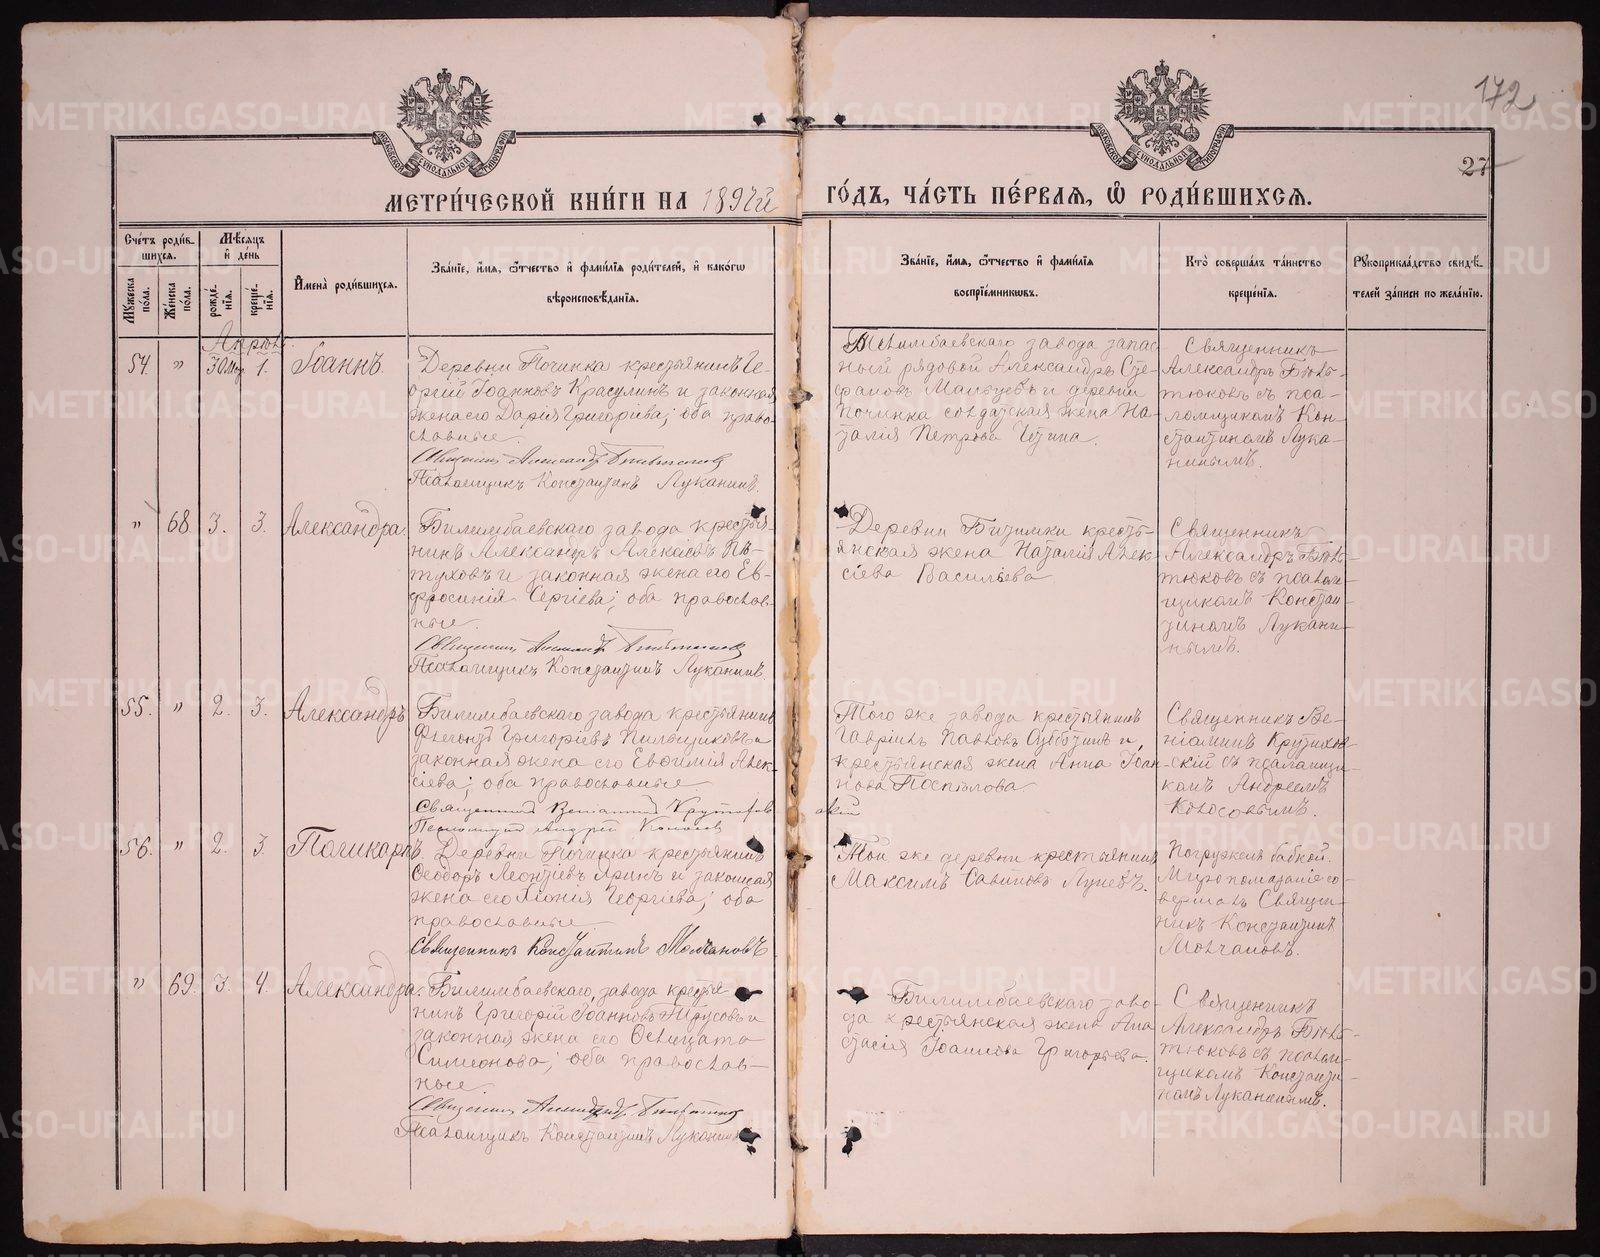 172
27
МЕТРИ́ЧЕСКОЙ КНИ́ГИ НА 1892й ГО́ДЪ, ЧА́СТЬ ПЕ́РВАЯ, Ѡ РОДИ́ВШИХСЯ.
Сче́тъ роди́в-
шихся.
Му́жеска по́ла.
Же́нска по́ла.
Мѣ́сяцъ
и҆ де́нь
рожде́-
нїя.
креще́-
нїя.
И҆мена̀ роди́вшихся.
Зва́нїе, и҆́мя, ѻ҆́тчество и҆ фами́лїя роди́телей, и҆ како́гѡ
вѣроисповѣ́данїя.
Зва́нїе, и҆́мя, ѻ҆́тчество и҆ фами́лїя
воспрїе́мникѡвъ.
Кто̀ соверша́лъ та́инство
креще́нїя.
Рꙋкоприкла́дство свидѣ́-
телей за́писи по жела́нїю.
Апрѣль.
54 " 30 Мар 1. Іоаннъ.
Деревни Починка крестьянинъ Ге-
оргій Іоанновъ Красулинъ и законная
жена его Дарія Григоріева; оба право-
славные.
Священник Александръ Бирюков
Псаломщикъ Константинъ Луканинъ.
Билимбаевскаго завода запас-
ный рядовой Александръ Сте-
фановъ Мальцевъ и деревни
Починка солдатская жена На-
талія Петрова
Священникъ
Александръ
съ пса-
ломщикомъ Кон-
стантиномъ Лука-
нинымъ.
" 68 3. 3. Александра.
Билимбаевскаго завода крестья-
нинъ Александръ Алексіевъ Пѣ-
туховъ и законная жена его Ев-
фросинія Сергіева; оба православ-
ные.
Псаломщикъ Константинъ Луканинъ.
Деревни Битимки кресть-
янская жена Наталія Алек-
сіева Васильева
Священникъ
Александръ
съ псалом-
щикомъ Констан-
тиномъ Лукани-
нымъ.
55. " 2. 3. Александръ
Билимбаевскаго завода крестьянинъ
Флегонтъ Григоріевъ Пильщиковъ и
законная жена его Евфимія Алек-
сіева; оба православные
Священник Веніамин Крутиховскій
Псаломщик Андрей Колосов
Того же завода крестьянинъ
Гавріилъ Павловъ Субботинъ и
крестьянская жена Анна Іоан-
нова Поспѣлова
Священникъ Ве-
ніаминъ Крутихов-
скій съ псаломщи-
комъ Андреемъ
Колосовымъ.
56. " 2. 3. Поликарпъ.
Деревни Починка крестьянинъ
Ѳеодоръ Леонтіевъ Яринъ и законная
жена его Хіонія Георгіева; оба
православные
Священникъ Константинъ Молчановъ
Той же деревни крестьянинъ
Максимъ Саввиновъ Луневъ.
Погружен бабкой.
Миропомазаніе со-
вершалъ Священ-
никъ Константинъ
Молчановъ.
" 69. 3. 4. Александра.
Билимбаевскаго завода крестья-
нинъ Григорій Іоанновъ Трусовъ и
законная жена его
Симеонова; оба православ-
ные.
Псаломщикъ Константинъ Луканинъ
Билимбаевскаго заво-
да крестьянская жена Ана-
стасія Іоаннова Григорьева.
Священникъ
Александръ
съ псалом-
щикомъ Константи-
номъ Луканинымъ.
METRIKI.GASO-URAL.RU